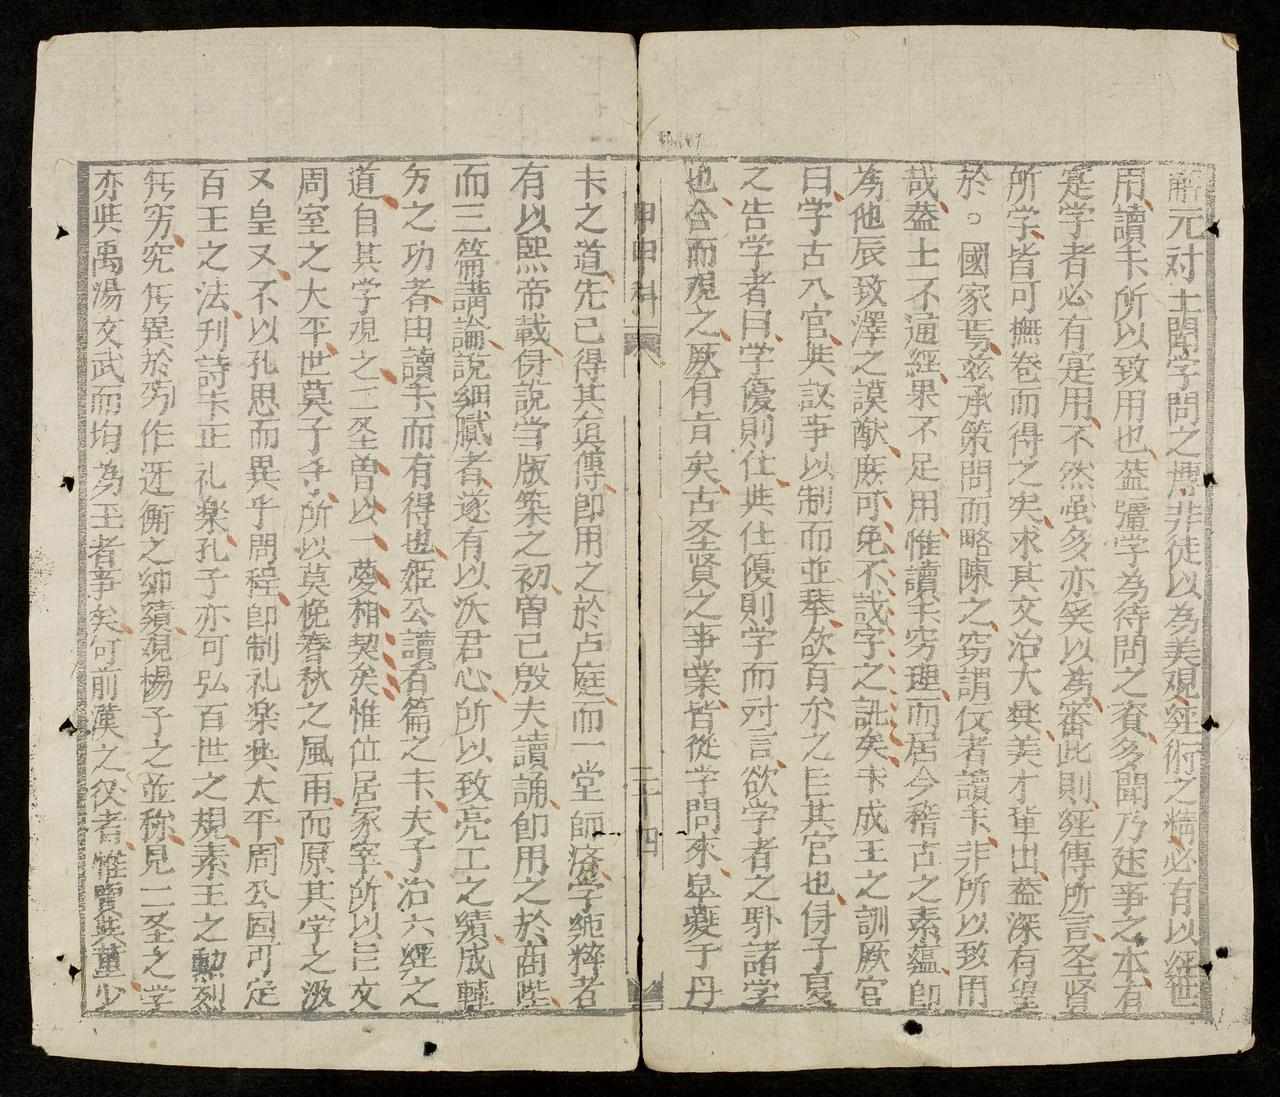 解元对士聞学問之博非徒以為美覌經術之精必有以經世
用讀卡所以致用也葢彊学為待問之賓多聞乃建事之本有
寔学者必有寔用不然虽多亦奚以為審此則經傳所言圣賢
所学皆可撫卷而得之矣求其文治大興美才輩出葢深有望
於。國家焉兹承策問而略陳之窃謂仅者讀卡非所以致用
哉葢士不通經果不足用惟讀卡穷理而居今稽古之素蘊即
為他辰致澤之謨猷庶可免不試字之訛矣卡成王之訓厥官
曰学古入官其議事以制而並举欲百尔之臣其官也伃子夏
之告学者曰学優則仕其仕優則学而对言欲学者之卧諸学
也合而覌之厥有肯矣古圣賢之事業皆從学問來臯夔于丹
甲申科
二十四
卡之道先己得其眞傳即用之於卢庭而一堂師济学純粹者
有以熙帝載伃説当版築之初曽己殷夫讀誦即用之於商陛
而三篇講論説細膩者遂有以沃君心所以致亮工之績成轉
方之功者由讀卡而有得也姬公讀百篇之卡夫子治六經之
道自其学覌之二圣曽以一夢相契矣惟位居冢宰所以臣文
周室之大平世莫予予所以莫挽春秋之風雨而原其学之汲
又皇又不以孔思而異乎問程即制礼楽其太平周公固可定
百王之法刋詩卡正礼楽孔子亦可弘百世之規素王之勲烈
無穷究無異於旁作迓衡之師績覌楊子之並称見二圣之学
亦與禹湯文武而均為王者事矣何前漢之仅者惟賈與董少